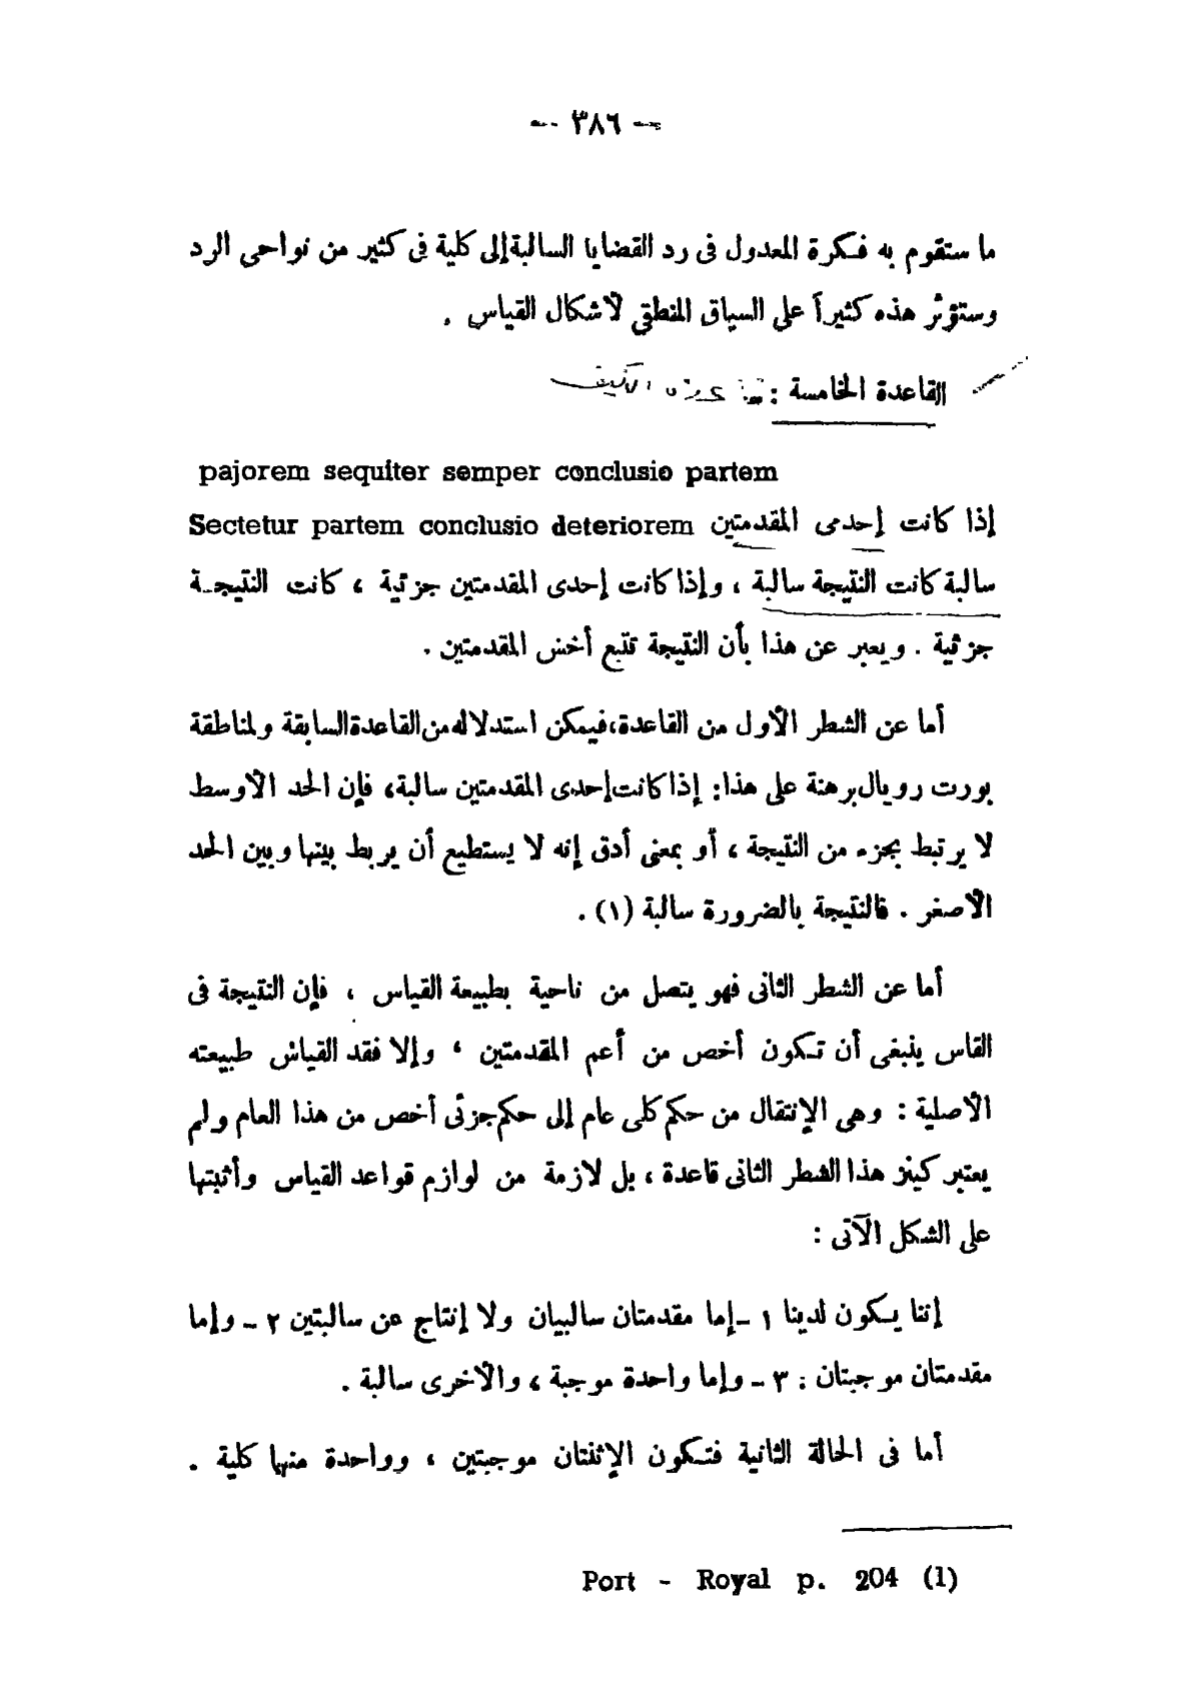 -- ٣٨٦ --
ما ستقوم به فكرة المعدول فى رد القضايا السالبة إلى كلية فى كثير من نواحى الرد
وستؤثر هذه كثيراً على السياق المنطقى لأشكال القياس .
القاعدة الخامسة :
pajorem sequiter semper conclusio partem
إذا كانت إحدى المقدمتين Sectetur partem conclusio deteriorem
سالبة كانت النتيجة سالبة ، وإذا كانت إحدى المقدمتين جزئية ، كانت النتيجة
جزئية . ويعبر عن هذا بأن النتيجة تتبع أخس المقدمتين .
أما عن الشطر الأول من القاعدة، فيمكن استدلاله من القاعدة السابقة ولمناطقة
بورت رويال برهنة على هذا: إذا كانت إحدى المقدمتين سالبة، فإن الحد الأوسط
لا يرتبط بجزء من النتيجة ، أو بمعنى أدق إنه لا يستطيع أن يربط بينها وبين الحد
الأصغر . فالنتيجة بالضرورة سالبة (١) .
أما عن الشطر الثانى فهو يتصل من ناحية بطبيعة القياس ، فإن النتيجة فى
القاس ينبغى أن تكون أخص من أعم المقدمتين ، وإلا فقد القياس طبيعته
الأصلية : وهى الإنتقال من حكم كلى عام إلى حكم جزئى أخص من هذا العام ولم
يعتبر كينز هذا الشطر الثانى قاعدة ، بل لازمة من لوازم قواعد القياس وأثبتها
على الشكل الآتى :
إننا يكون لدينا ١ - إما مقدمتان سالبيان ولا إنتاج عن سالبتين ٢ - وإما
مقدمتان موجبتان : ٣ - وإما واحدة موجبة ، والأخرى سالبة .
أما فى الحالة الثانية فتكون الإثنتان موجبتين ، وواحدة منها كلية .
Port - Royal p. 204 (1)